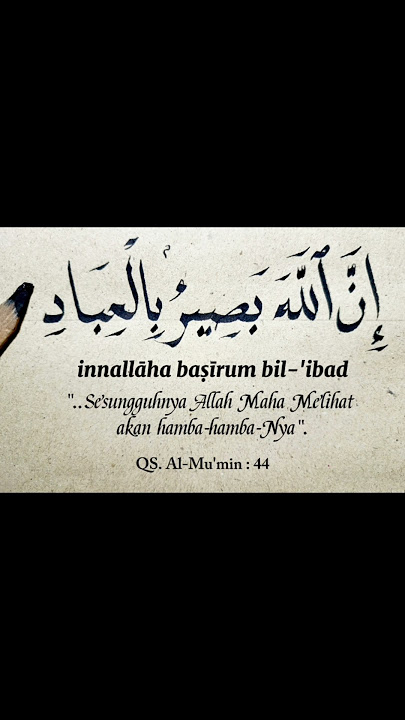 إِنَّ ٱللَّهَ بَصِيرٌۢ بِالْعِبَادِ
innallāha baṣīrum bil-'ibad
"..Se'sungguhnya Allah Maha Me'lihat
akan hamba-hamba-Nya".
QS. Al-Mu'min : 44